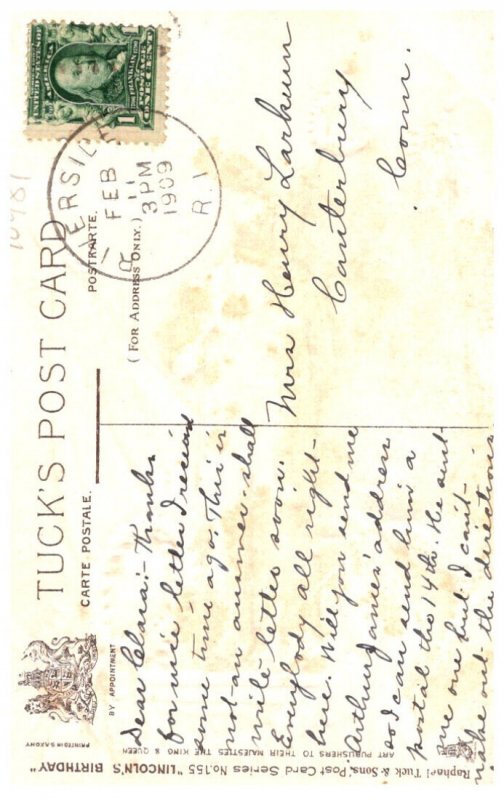 TUCK'S POST CARD
CARTE POSTALE.
POSTKARTE.
(FOR ADDRESS ONLY.)
BY APPOINTMENT
PRINTED IN SAXONY
Raphael Tuck & Sons' Post Card Series No. 155 "LINCOLN'S BIRTHDAY"
ART PUBLISHERS TO THEIR MAJESTIES THE KING & QUEEN
10981
FEB
11
3 PM
1909
R.I.
UNITED STATES OF AMERICA
FRANKLIN
POSTAGE
ONE CENT
1
1
Dear Clara:- Thanks
for nice letter I received
some time ago. This is
not an answer - shall
write letter soon.
Everybody all right -
here. Will you send me
Arthur James' address
so I can send him a
postal the 14th. He sent
me one but I can't
make out the directions
Mrs Henry Larkum
Canterbury
Conn.